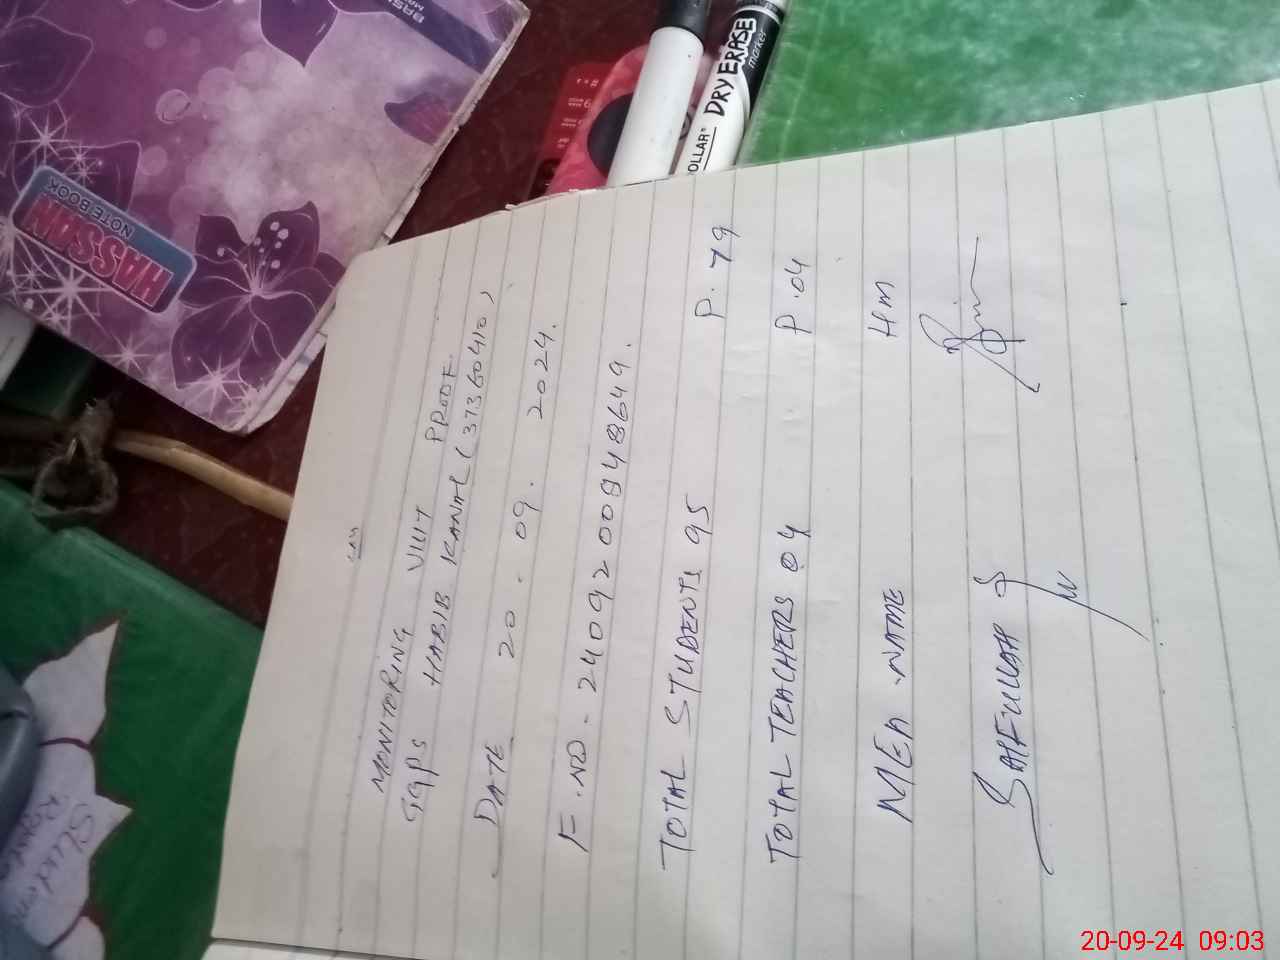 MONITORING VISIT PROOF
GGPS HABIB KANAL (37360410)
DATE 20.09.2024.
F.NO-2409200848649.
TOTAL STUDENTS 95 P.79
TOTAL TEACHERS 04 P.04
MEA NAME HM
SAIFULLAH
HASSAN
NOTE BOOK
DOLLAR
DRY ERASE
marker
20-09-24 09:03